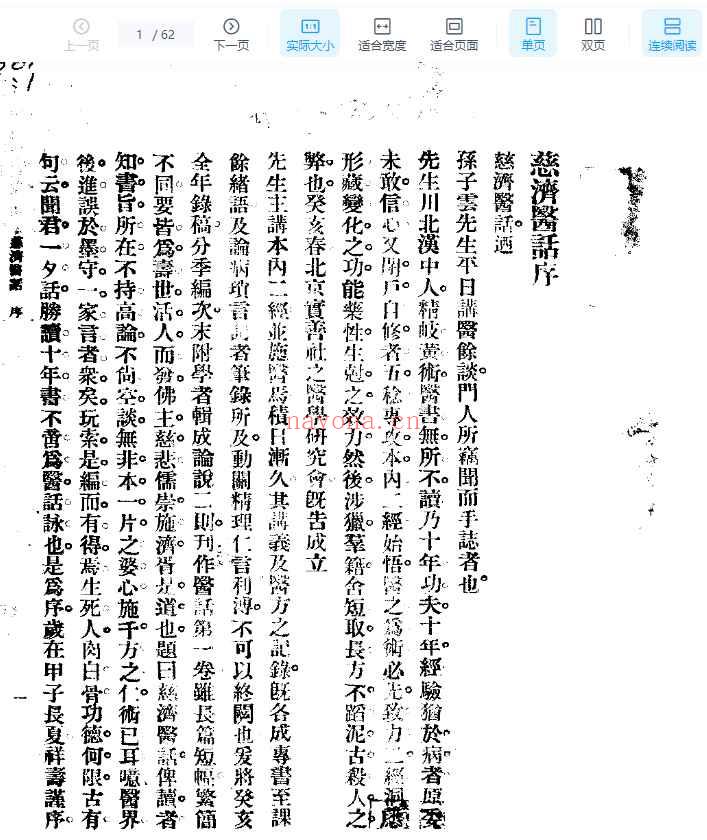 上一页
1 / 62
下一页
实际大小
适合宽度
适合页面
单页
双页
连续阅读
慈濟醫話序
慈濟醫話迺
孫子雲先生平日講醫餘談門人所竊聞而手誌者也。
先生川北漢中人精岐黃術醫書無所不讀乃十年功夫十年經驗猶於病者原委
未敢信心又閉戶自修者五稔專攻本內二經始悟醫之爲術必先致力二經洞悉
形藏變化之功能藥性生尅之效力然後涉獵羣籍舍短取長方不蹈泥古殺人之
弊也。癸亥春北京實善社之醫學研究會既告成立
先生主講本內二經並施醫焉積日漸久其講義及醫方之記錄。既各成專書至課
餘緒語及論病瑣言記者筆錄所及動關精理仁言利溥。不可以終閟也爰將癸亥
全年錄稿。分季編次。末附學者輯成論說二則。刊作醫話第一卷雖長篇短幅繁簡
不同要皆爲壽世活人而發佛主慈悲儒崇施濟胥是道也題曰慈濟醫話俾讀者
知書旨所在不持高論不尙空談無非本一片之婆心施千方之仁術已耳噫醫界
後進誤於墨守一家言者衆矣玩索是編而有得焉生死人肉白骨功德何限古有
句云聞君一夕話勝讀十年書不啻爲醫話詠也是爲序歲在甲子長夏祥壽謹序
慈濟醫話 序
一
nayona.cn